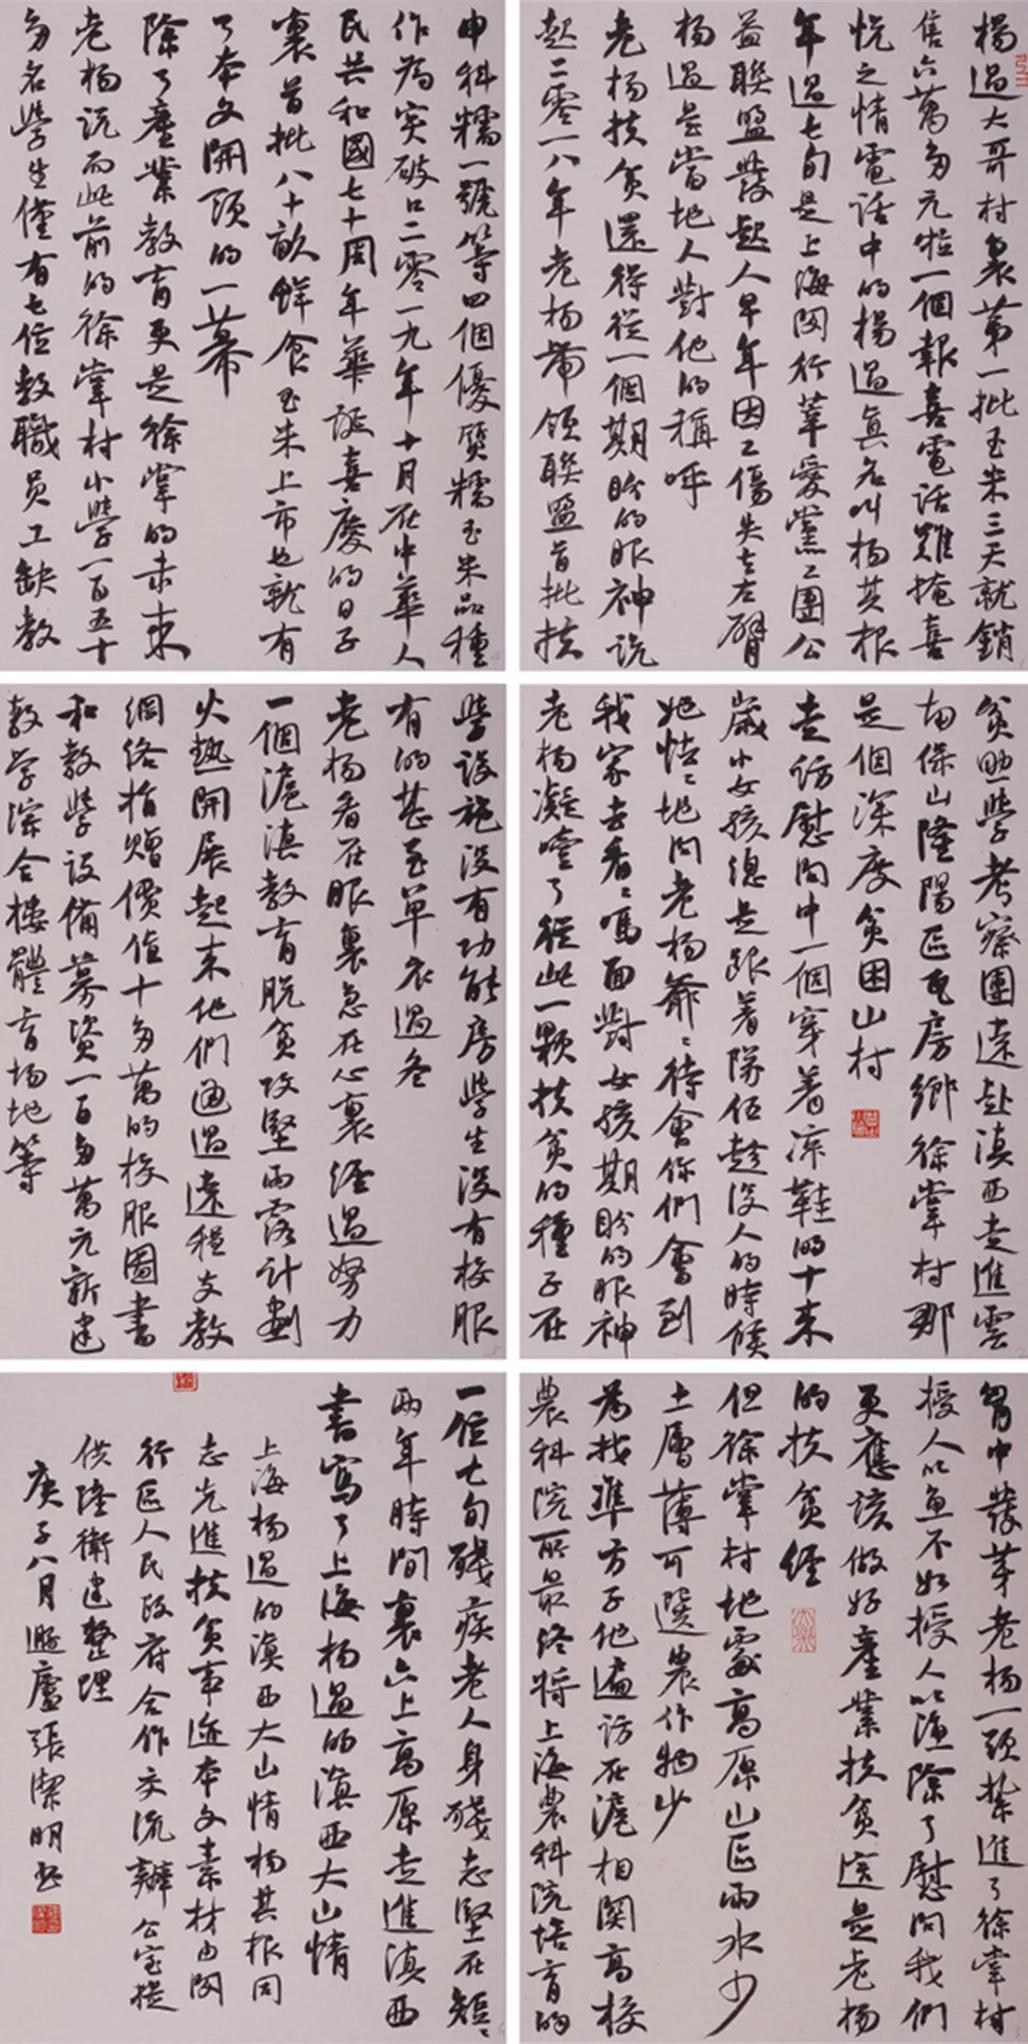 楊過大哥村裏第一批玉米三天就銷
售六萬多元啦一個報喜電話難掩喜
悅之情電話中的楊過真名叫杨其根
年過七旬是上海閔行莘愛黨工團公
益聯盟發起人早年因工傷失去左臂
杨過是當地人對他的稱呼
老杨扶貧還得從一個期盼的眼神说
起二零一八年老杨帶領聯盟首批扶
貧助學考察團遠赴滇西走進雲
南保山隆陽區瓦房鄉徐掌村那
是個深度貧困山村
走訪慰問中一個穿着凉鞋的十來
歲小女孩總是跟着隊伍趁没人的時候
她怯怯地问老杨爺爺待會你們會到
我家去看看嗎面對女孩期盼的眼神
老杨凝噎了從此一顆扶貧的種子在
胸中發芽老杨一頭紮進了徐掌村
授人以魚不如授人以漁除了慰问我們
更應該做好產業扶貧這是老杨
的扶貧經
但徐掌村地處高原山區雨水少
土層薄可選農作物少
為找準方子他遍訪在滬相関高校
農科院所最終將上海農科院培育的
申科糯一號等四個優質糯玉米品種
作為突破口二零一九年十月在中華人
民共和國七十周年華誕喜慶的日子
裏首批八十畝鮮食玉米上市也就有
了本文開頭的一幕
除了產業教育更是徐掌的未來
老杨说而此前的徐掌村小學一百五十
多名學生僅有七位教職员工缺教
學設施没有功能房學生没有校服
有的甚至單衣過冬
老杨看在眼裏急在心裏經過努力
一個滬滇教育脱貧攻堅雨露計劃
火熱開展起來他們通過遠程支教
網絡捐贈價值十多萬的校服圖書
和教學設備募资一百多萬元新建
教学綜合樓體育场地等
一位七旬殘疾老人身殘志堅在短短
兩年時間裏六上高原走進滇西
書寫了上海杨過的滇西大山情
上海杨過的滇西大山情杨其根同
志先進扶貧事迹本文素材由閔
行區人民政府合作交流辦公室提
供陸衛建整理
庚子八月 廬張潔明书